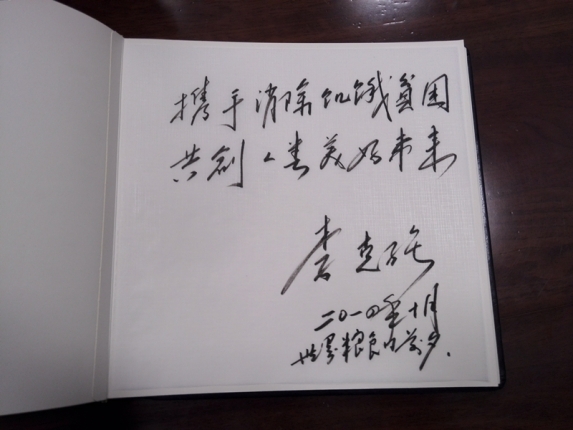 携手消除饥饿贫困
共创人类美好未来
李克强
二〇一四年十月
世界粮食日前夕.